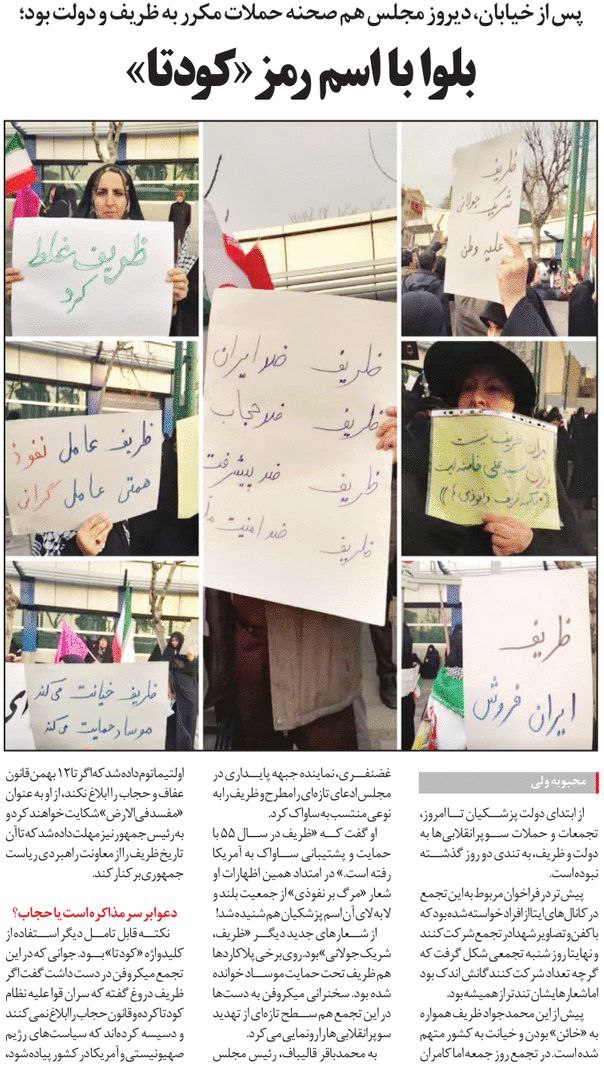 پس از خیابان، دیروز مجلس هم صحنه حملات مکرر به ظریف و دولت بود؛
بلوا با اسم رمز «کودتا»
ظریف
شریک جولانی
علیه وطن
ظریف غلط
کرد
ظریف ضد ایران
ظریف ضد حجاب
ظریف ضد پیشرفت
ظریف ضد امنیت
ایران ظریف نیست
ایران سید علی خامنه ایست
ظریف عامل نفوذ
همتی عامل گرانی
ظریف
ایران فروش
ظریف خیانت می‌کند
موساد حمایت می‌کند
محبوبه ولی
از ابتدای دولت پزشکیان تا امروز،
تجمعات و حملات سوپرانقلابی‌ها به
دولت و ظریف، به تندی دو روز گذشته
نبوده است.
پیش‌تر در فراخوان مربوط به این تجمع
در کانال‌های ایتا از افراد خواسته شده بود که
با کفن و تصاویر شهدا در تجمع شرکت کنند
و نهایتا روز شنبه تجمعی شکل گرفت که
گرچه تعداد شرکت کنندگانش اندک بود
اما شعارهایشان تندتر از همیشه بود.
پیش از این محمدجواد ظریف همواره
به «خائن» بودن و خیانت به کشور متهم
شده است. در تجمع روز جمعه اما کامران
غضنفری، نماینده جبهه پایداری در
مجلس ادعای تازه‌ای را مطرح و ظریف را به
نوعی منتسب به ساواک کرد.
او گفت که «ظریف در سال ۵۵ با
حمایت و پشتیبانی ساواک به آمریکا
رفته است.» در امتداد همین اظهارات او
شعار «مرگ بر نفوذی» از جمعیت بلند و
لا به لای آن اسم پزشکیان هم شنیده شد!
از شعارهای جدید دیگر «ظریف،
شریک جولانی» بود. روی برخی پلاکاردها
هم ظریف تحت حمایت موساد خوانده
شده بود. سخنرانی میکروفن به دست‌ها
در این تجمع هم سطح تازه‌ای از تهدید
سوپرانقلابی‌ها را رونمایی می‌کرد.
به محمدباقر قالیباف، رئیس مجلس
اولتیماتوم داده شد که اگر تا ۱۲ بهمن قانون
عفاف و حجاب را ابلاغ نکند، از او به عنوان
«مفسد فی‌الارض» شکایت خواهند کرد و
به رئیس جمهور نیز مهلت داده شد که تا آن
تاریخ ظریف را از معاونت راهبردی ریاست
جمهوری برکنار کند.
دعوا بر سر مذاکره است یا حجاب؟
نکته قابل تامل دیگر استفاده از
کلیدواژه «کودتا» بود. جوانی که در این
تجمع میکروفن در دست داشت گفت اگر
ظریف دروغ گفته که سران قوا علیه نظام
کودتا کرده و قانون حجاب را ابلاغ نمی کنند
و دسیسه کرده‌اند که سیاست‌های رژیم
صهیونیستی و آمریکا در کشور پیاده شود،